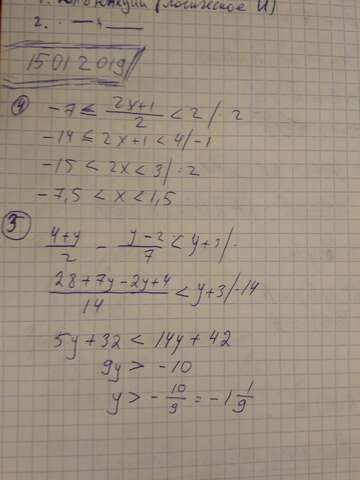 1. Конъюнкции (логическое И)
2. —"—
15012019
④ -7 ≤ (2x+1)/2 < 2 / ·2
-14 ≤ 2x+1 < 4 / -1
-15 < 2x < 3 / :2
-7,5 < x < 1,5
⑤
(4+y)/2 - (y-2)/7 < y+3 / ·
(28+7y-2y+4)/14 < y+3 / ·14
5y+32 < 14y+42
9y > -10
y > -10/9 = -1 1/9